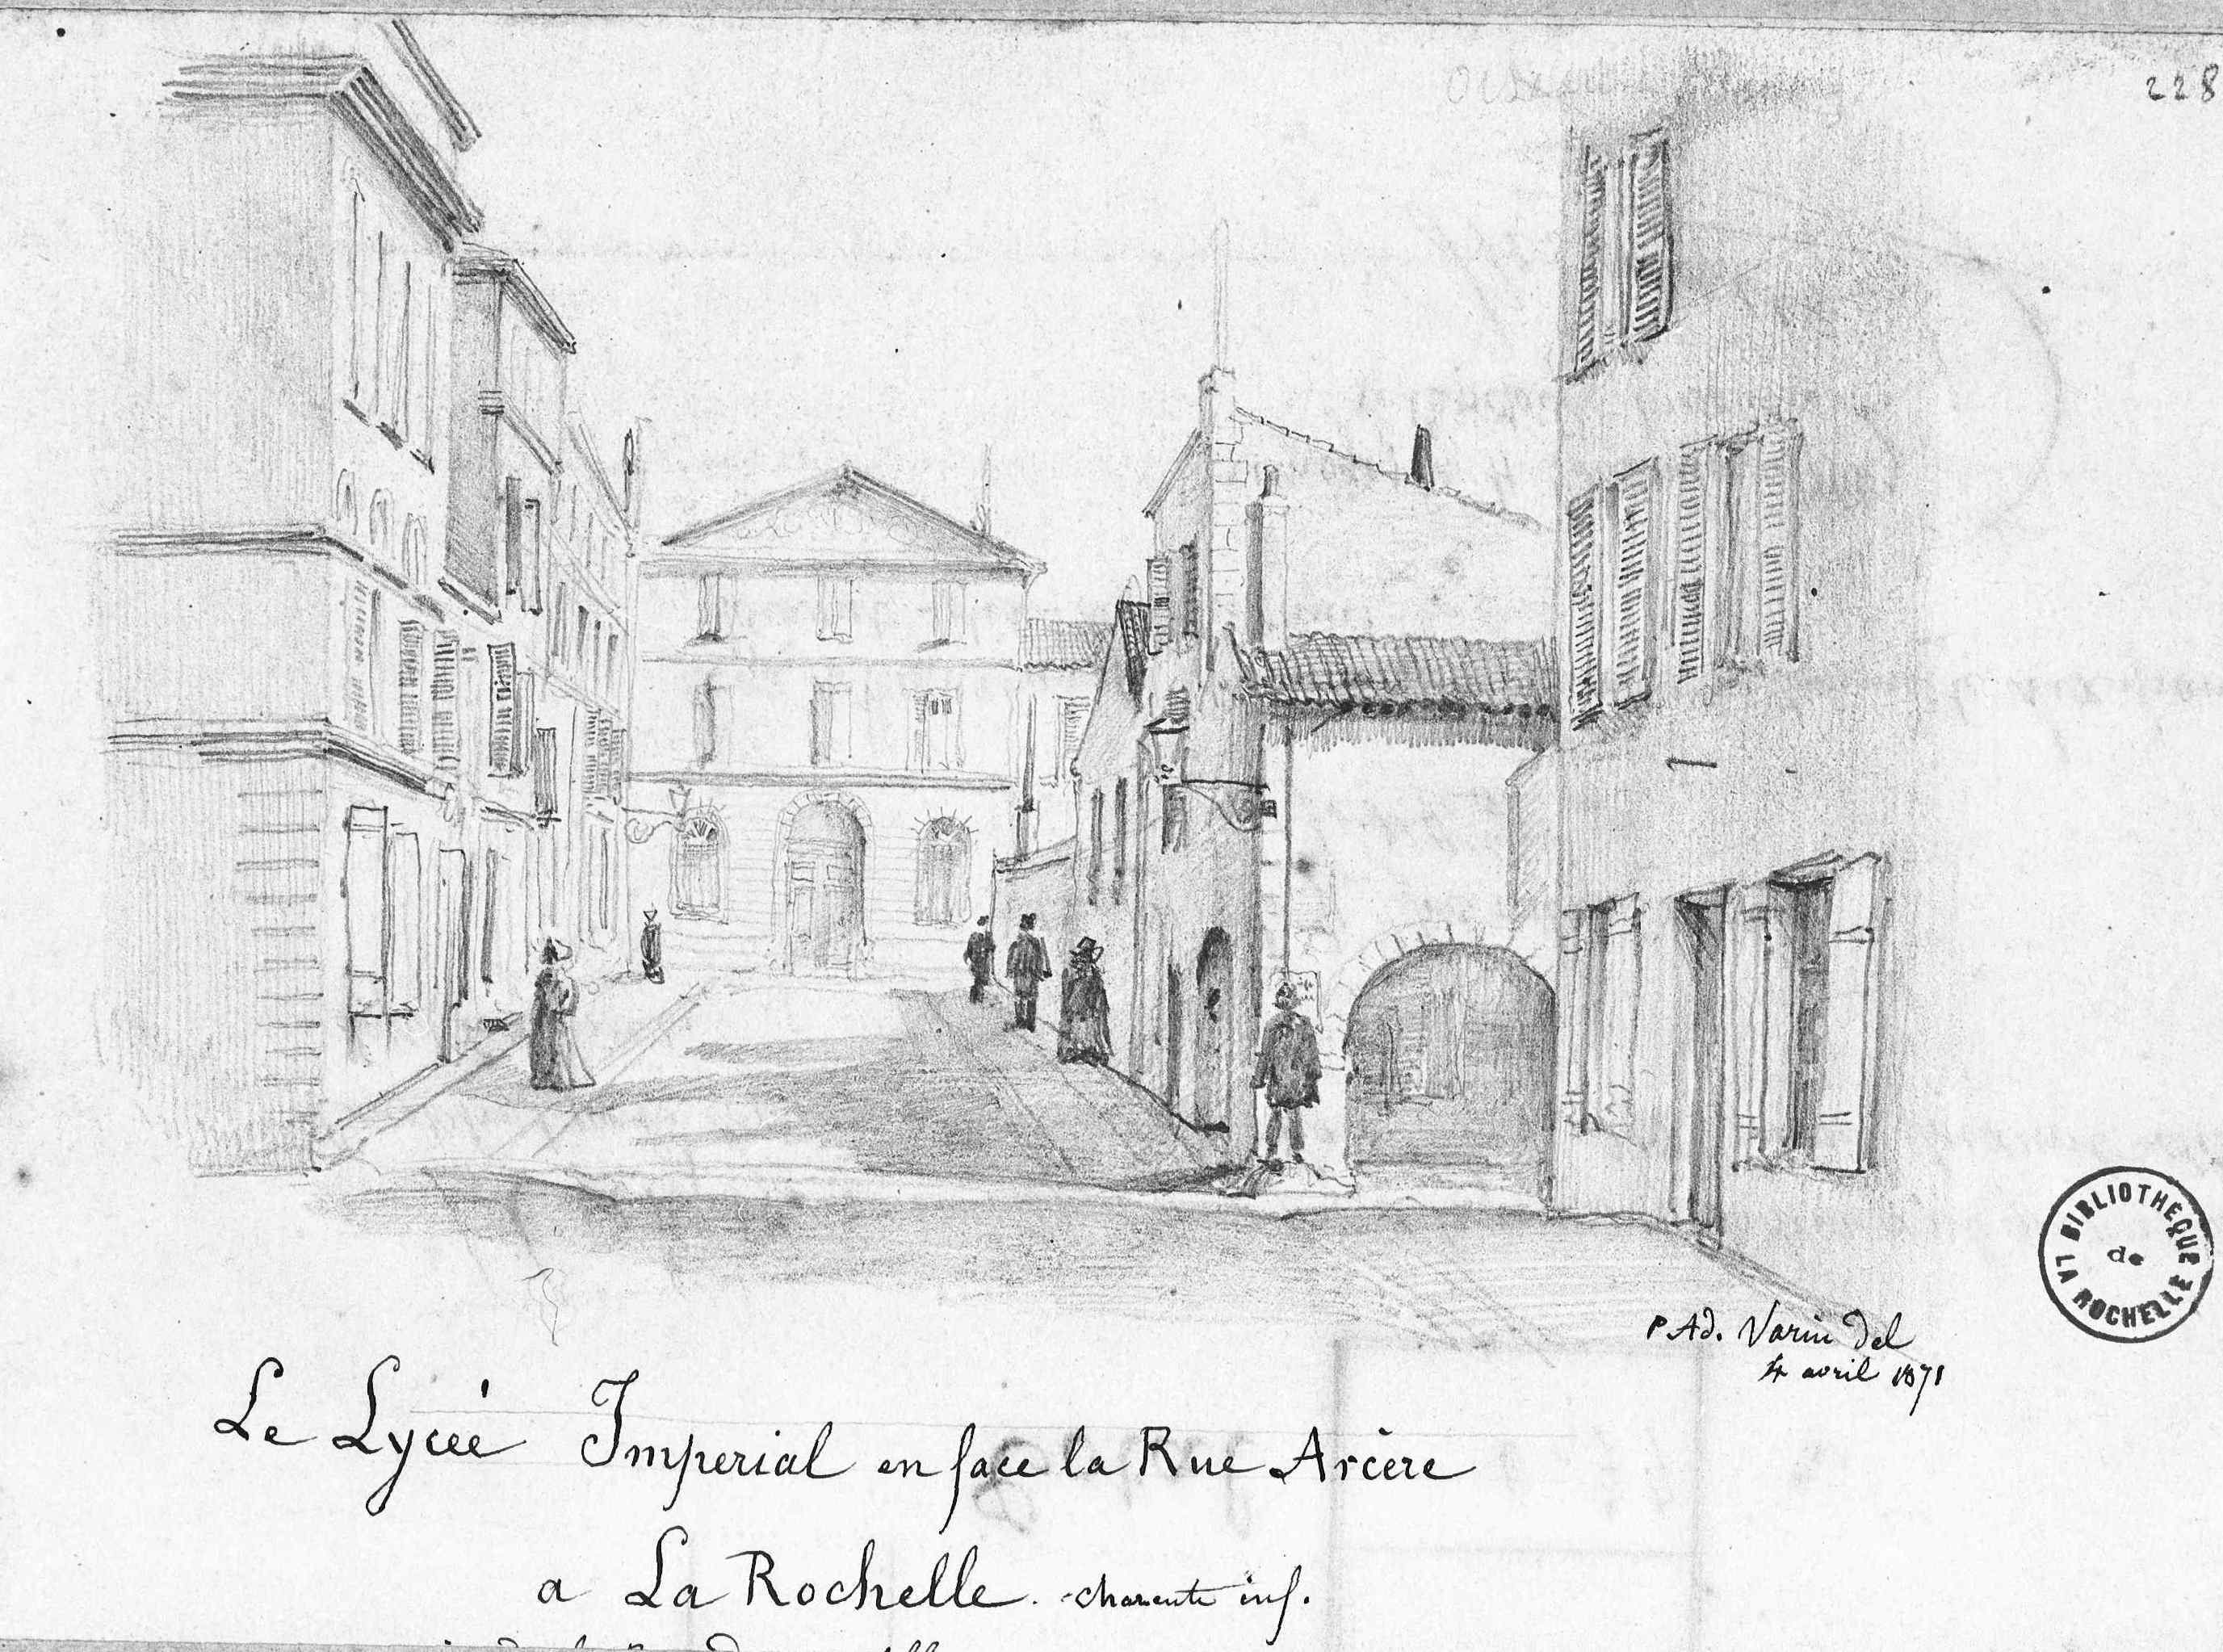 228
BIBLIOTHEQUE
de
LA ROCHELLE
P Ad. Varin del
4 avril 1871
Le Lyceé Imperial en face la Rue Arcère
a La Rochelle. charente inf.